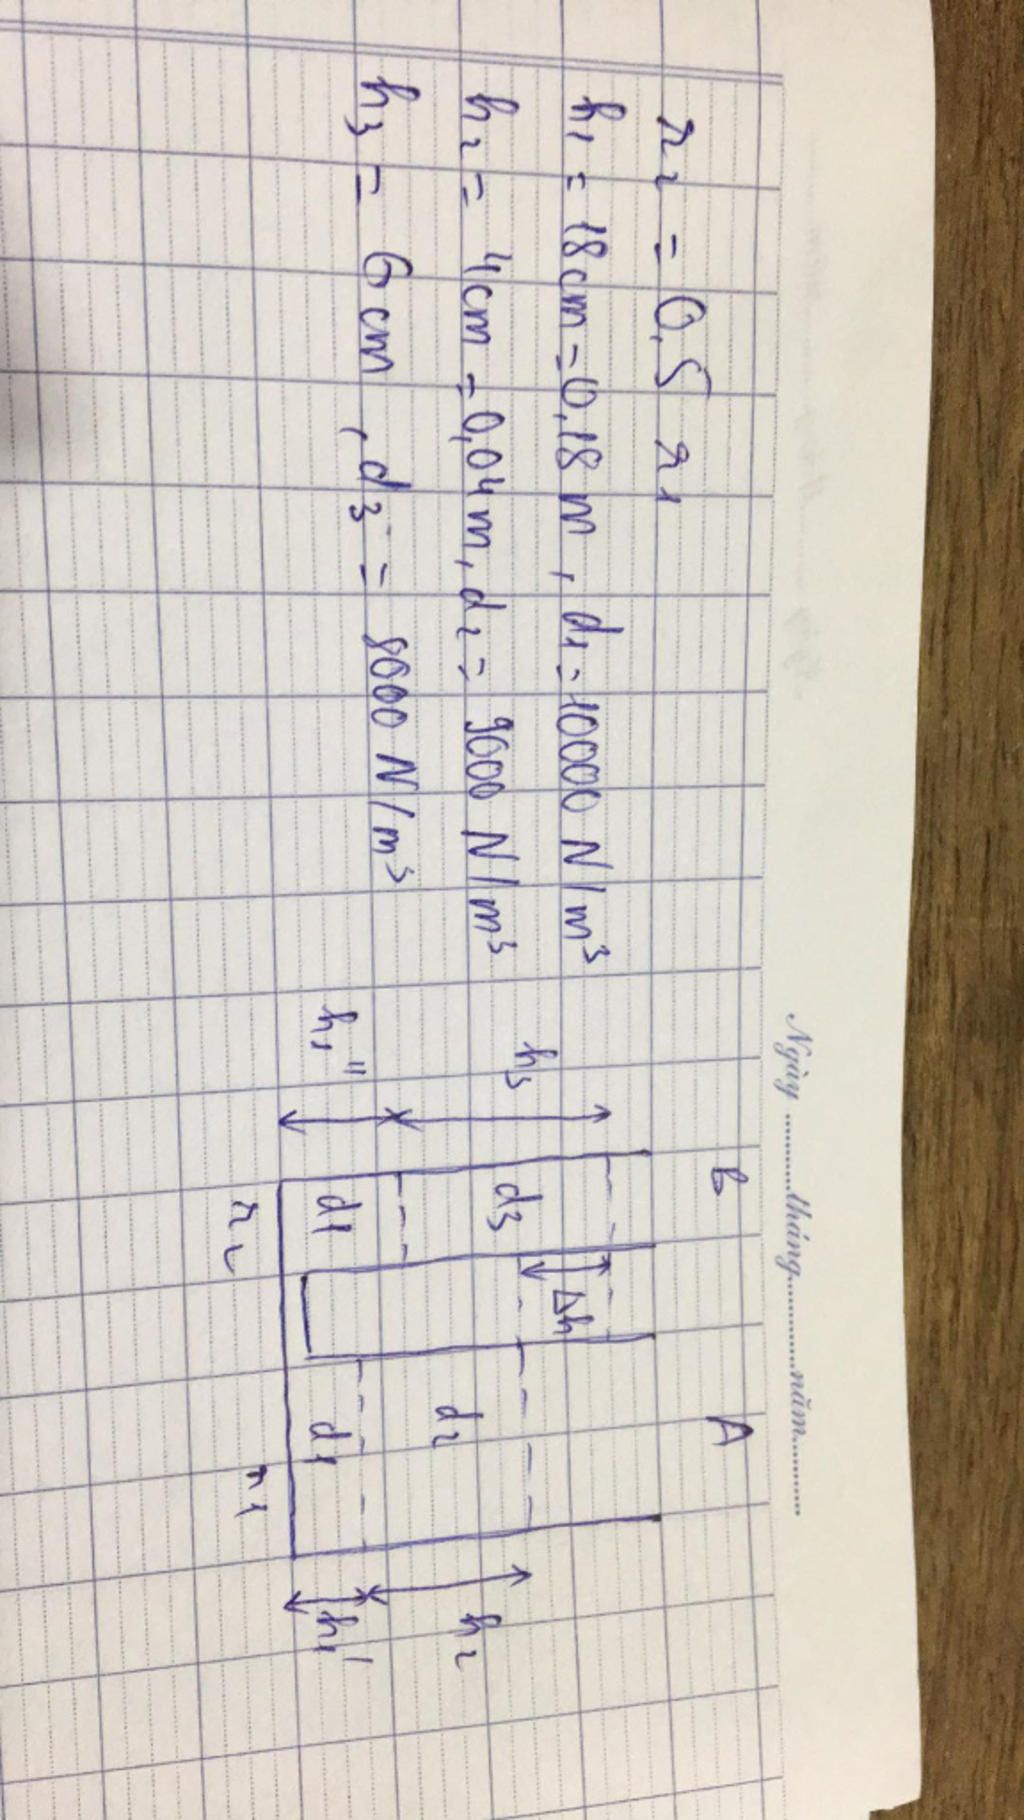 Ngày ........tháng..........năm..........
r₂ = 0,5 r₁
h₁ = 18cm = 0,18 m , d₁ = 10000 N/m³
h₂ = 4cm = 0,04m, d₂ = 9000 N/m³
h₃ = 6cm , d₃ = 8000 N/m³
B A
h₃ d₃ Δh d₂ h₂
h₁'' d₁ d₁ h₁'
r₂ r₁